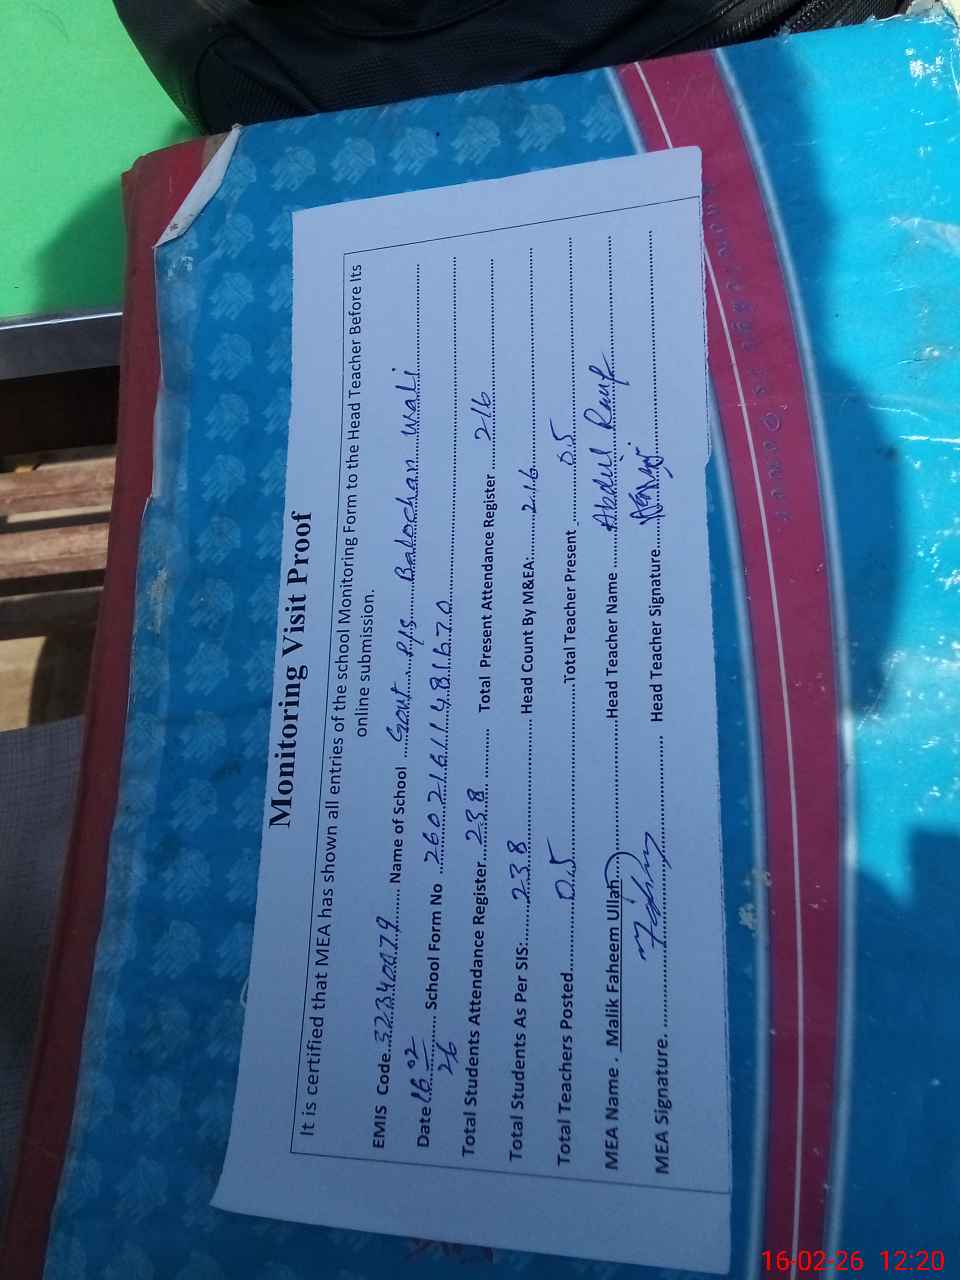 Monitoring Visit Proof
It is certified that MEA has shown all entries of the school Monitoring Form to the Head Teacher Before Its
online submission.
EMIS Code...32340079......... Name of School ......Govt P/S Balochan Wali..........
Date 16 02 26 ......... School Form No ...26021611481670..........
Total Students Attendance Register...238......... Total Present Attendance Register......216.........
Total Students As Per SIS:......238......... Head Count By M&EA:......216.........
Total Teachers Posted.........05.........Total Teacher Present .........05.........
MEA Name . Malik Faheem Ullah.........Head Teacher Name ......Abdul Rauf.........
MEA Signature. ......... Head Teacher Signature..........
16-02-26 12:20